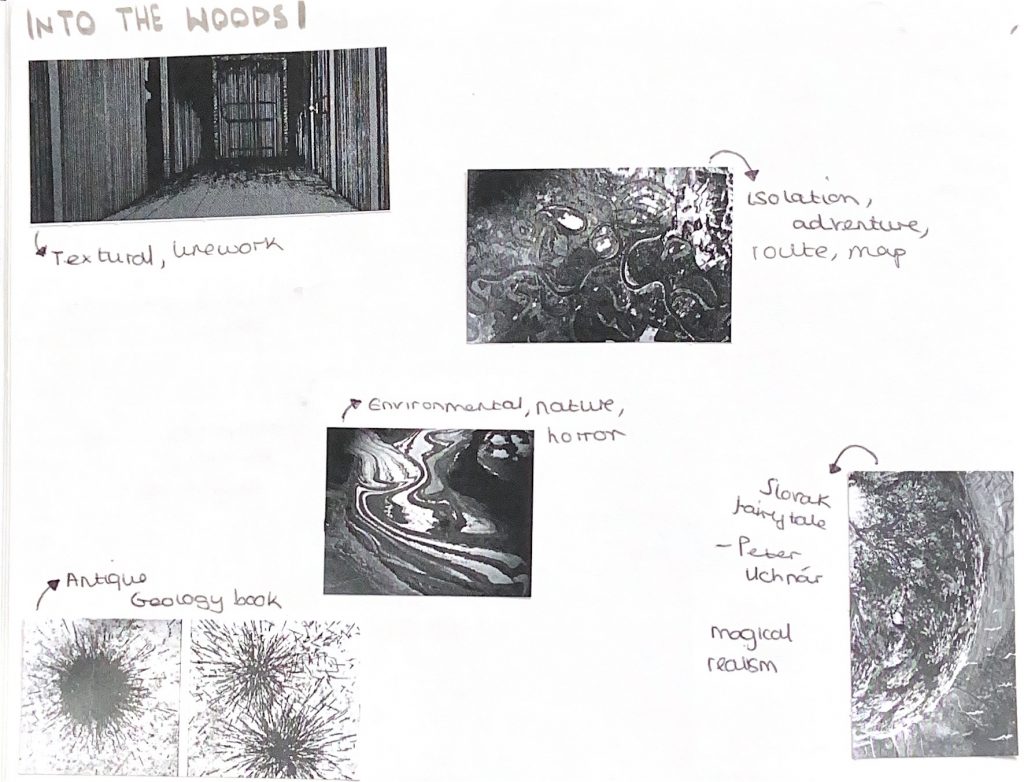 INTO THE WOODS!
Textural, linework
isolation,
adventure,
route, map
Environmental, nature,
horror
Slovak
fairytale
- Peter
Uchnár
magical
realism
Antique
Geology book